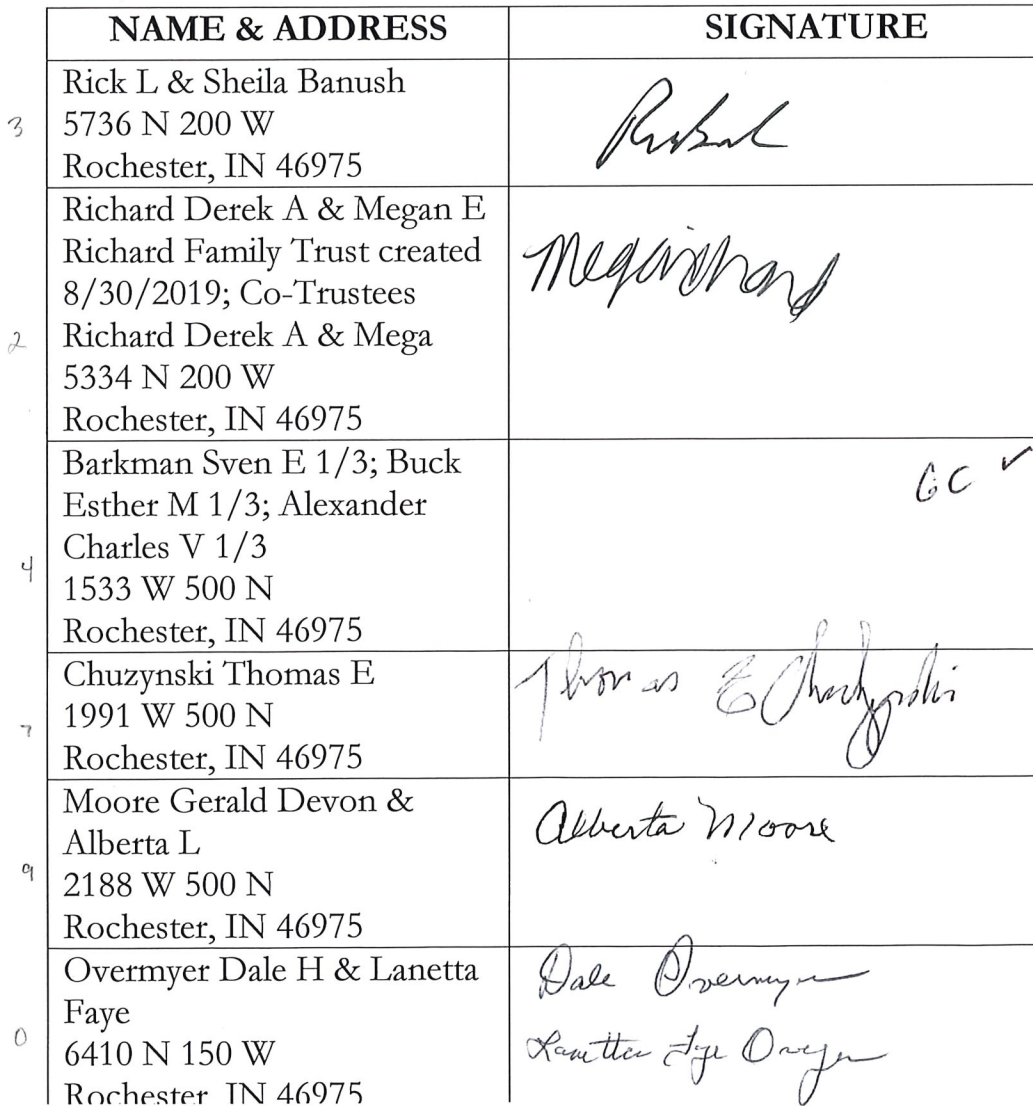 NAME & ADDRESS
SIGNATURE
3
Rick L & Sheila Banush
5736 N 200 W
Rochester, IN 46975
2
Richard Derek A & Megan E
Richard Family Trust created
8/30/2019; Co-Trustees
Richard Derek A & Mega
5334 N 200 W
Rochester, IN 46975
4
Barkman Sven E 1/3; Buck
Esther M 1/3; Alexander
Charles V 1/3
1533 W 500 N
Rochester, IN 46975
GC ✓
7
Chuzynski Thomas E
1991 W 500 N
Rochester, IN 46975
Thomas E
9
Moore Gerald Devon &
Alberta L
2188 W 500 N
Rochester, IN 46975
Alberta Moore
0
Overmyer Dale H & Lanetta
Faye
6410 N 150 W
Rochester IN 46975
Dale Overmyer
Lanetta Faye